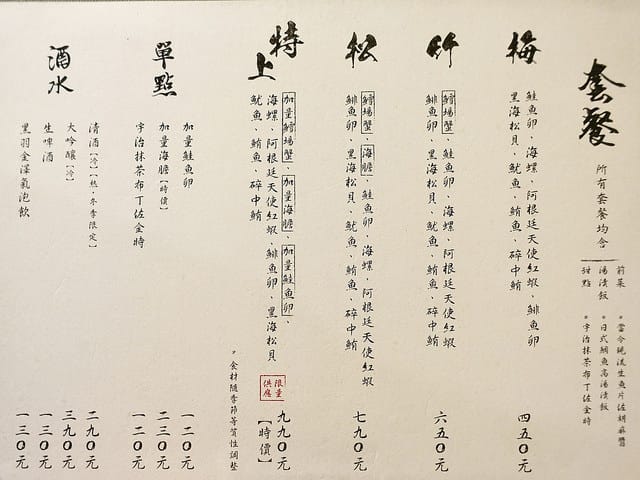 套餐
所有套餐均含
前菜 。當令現流生魚片佐胡麻醬
湯漬飯 。日式鯛魚高湯漬飯
甜點 。宇治抹茶布丁佐金時
梅
鮭魚卵、海螺、阿根廷天使紅蝦、鯡魚卵
黑海松貝、魷魚、鮪魚、碎中鮪
四五〇元
竹
鱈場蟹、鮭魚卵、海螺、阿根廷天使紅蝦
鯡魚卵、黑海松貝、魷魚、鮪魚、碎中鮪
六五〇元
松
鱈場蟹、海膽、鮭魚卵、海螺、阿根廷天使紅蝦
鯡魚卵、黑海松貝、魷魚、鮪魚、碎中鮪
七九〇元
特上
加量鱈場蟹、加量海膽、加量鮭魚卵、
海螺、阿根廷天使紅蝦、鯡魚卵、黑海松貝
魷魚、鮪魚、碎中鮪
限量供應
九九〇元
【特價】
。食材隨季節等質性調整
單點
加量鮭魚卵 一二〇元
加量海膽【時價】 二三〇元
宇治抹茶布丁佐金時 一二〇元
酒水
清酒【冷】【熱·冬季限定】 二九〇元
大吟釀【冷】 三九〇元
生啤酒 一三〇元
黑羽金澤氣泡飲 一三〇元